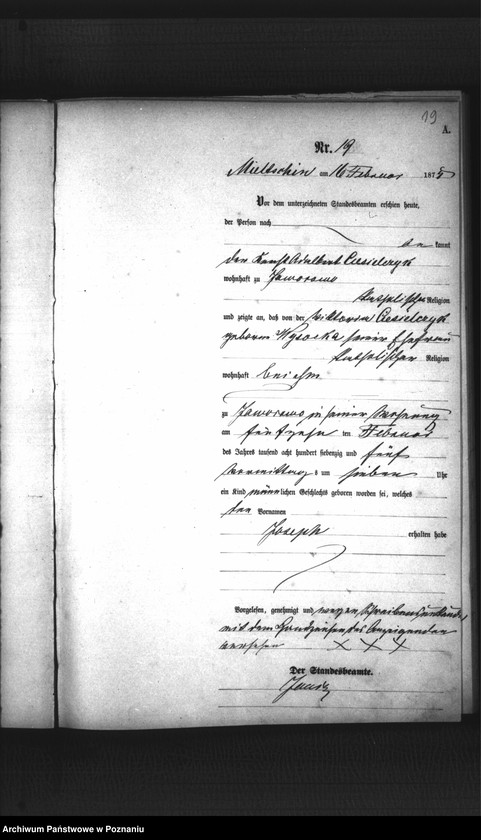 19
A.
Nr. 19
Mieltschin am 16 Februar 1875
Vor dem unterzeichneten Standesbeamten erschien heute,
der Person nach
be kannt
der Knecht Adalbert Cesielczyk
wohnhaft zu Jaworowo
katholischer Religion
und zeigte an, daß von der Viktoria Cesielczyk
geborene Wysocka seiner Ehefrau
katholischer Religion
wohnhaft bei ihm
zu Jaworowo in seiner Wohnung
am fünfzehn ten Februar
des Jahres tausend acht hundert siebenzig und fünf
Vormittags um sieben Uhr
ein Kind männlichen Geschlechts geboren worden sei, welches
den Vornamen
Joseph erhalten habe
Vorgelesen, genehmigt und wegen Schreibensunkunde
mit dem Handzeichen des Anzeigenden
versehen X X X
Der Standesbeamte.
Archiwum Państwowe w Poznaniu